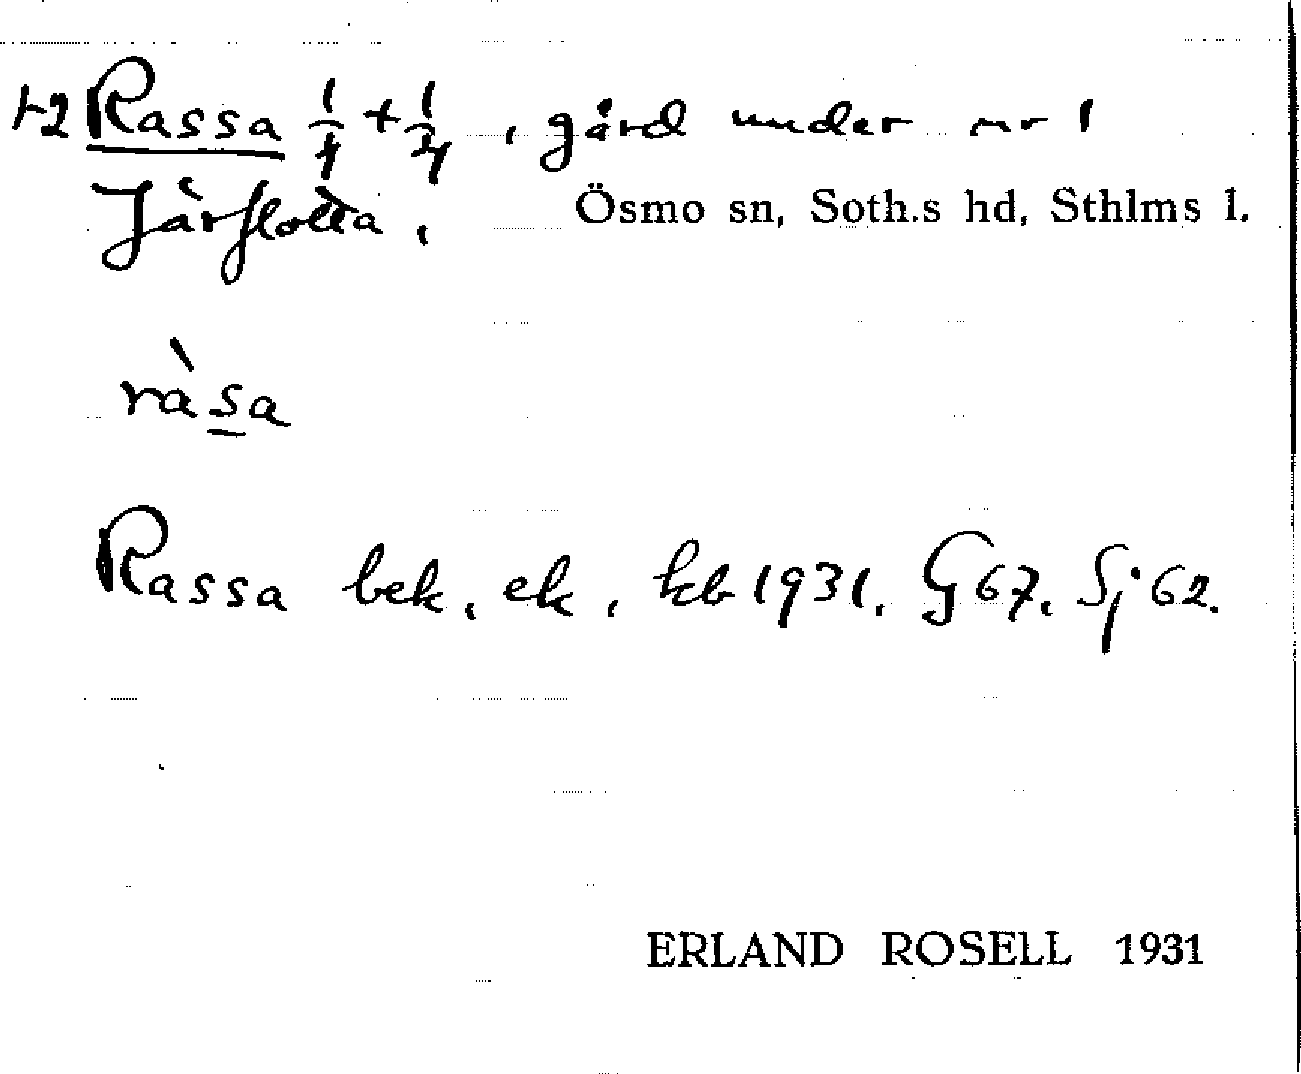 1-2 Rassa 1/4 + 1/24, gård under nr 1
Järflotta, Ösmo sn, Soth.s hd, Sthlms l.
ràsa
Rassa bek, ek, kb 1931, G 67, Sj 62.
ERLAND ROSELL 1931